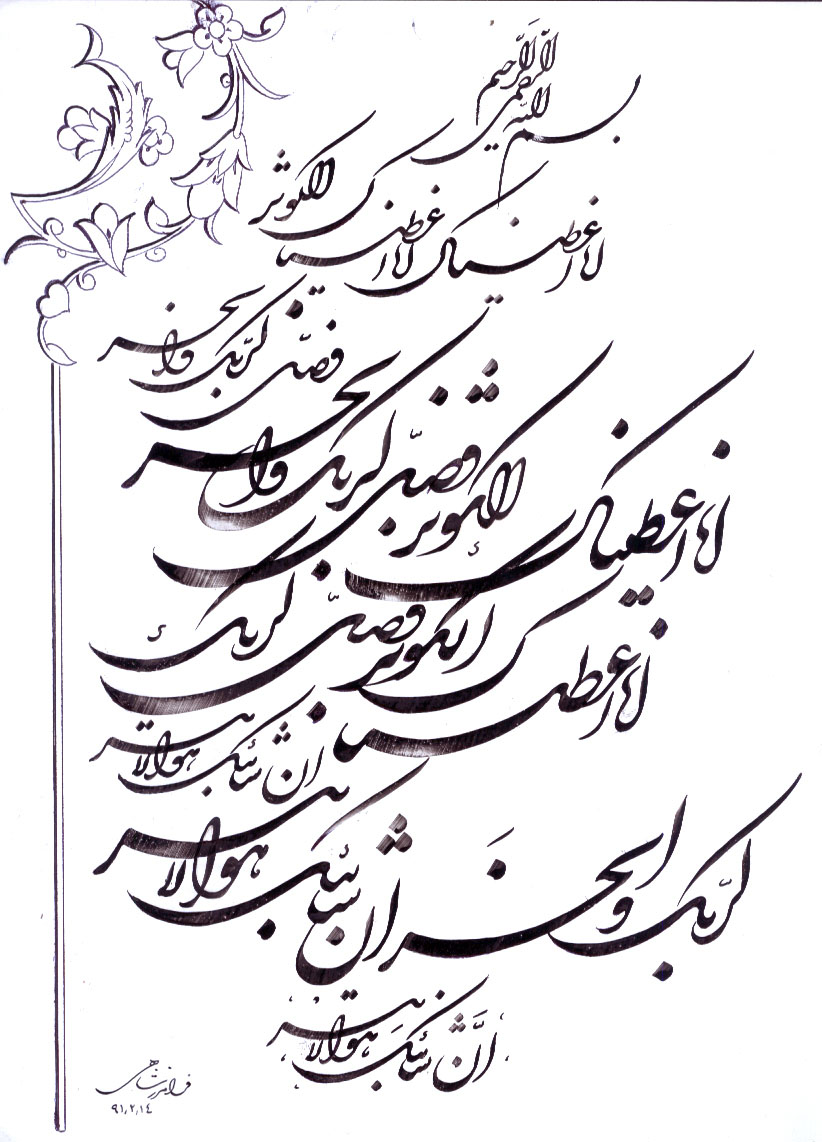 بسم الله الرحمن الرحیم
انا اعطیناک انا اعطیناک الکوثر
فصل لربک وانحر
انا اعطیناک الکوثر فصل لربک وانحر
انا اعطیناک الکوثر فصل لربک
ان شانئک هو الابتر
لربک و انحر ان شانئک هو الابتر
اِنَّ شانئکَ هو الابتر
۹۱٫۲٫۱٤